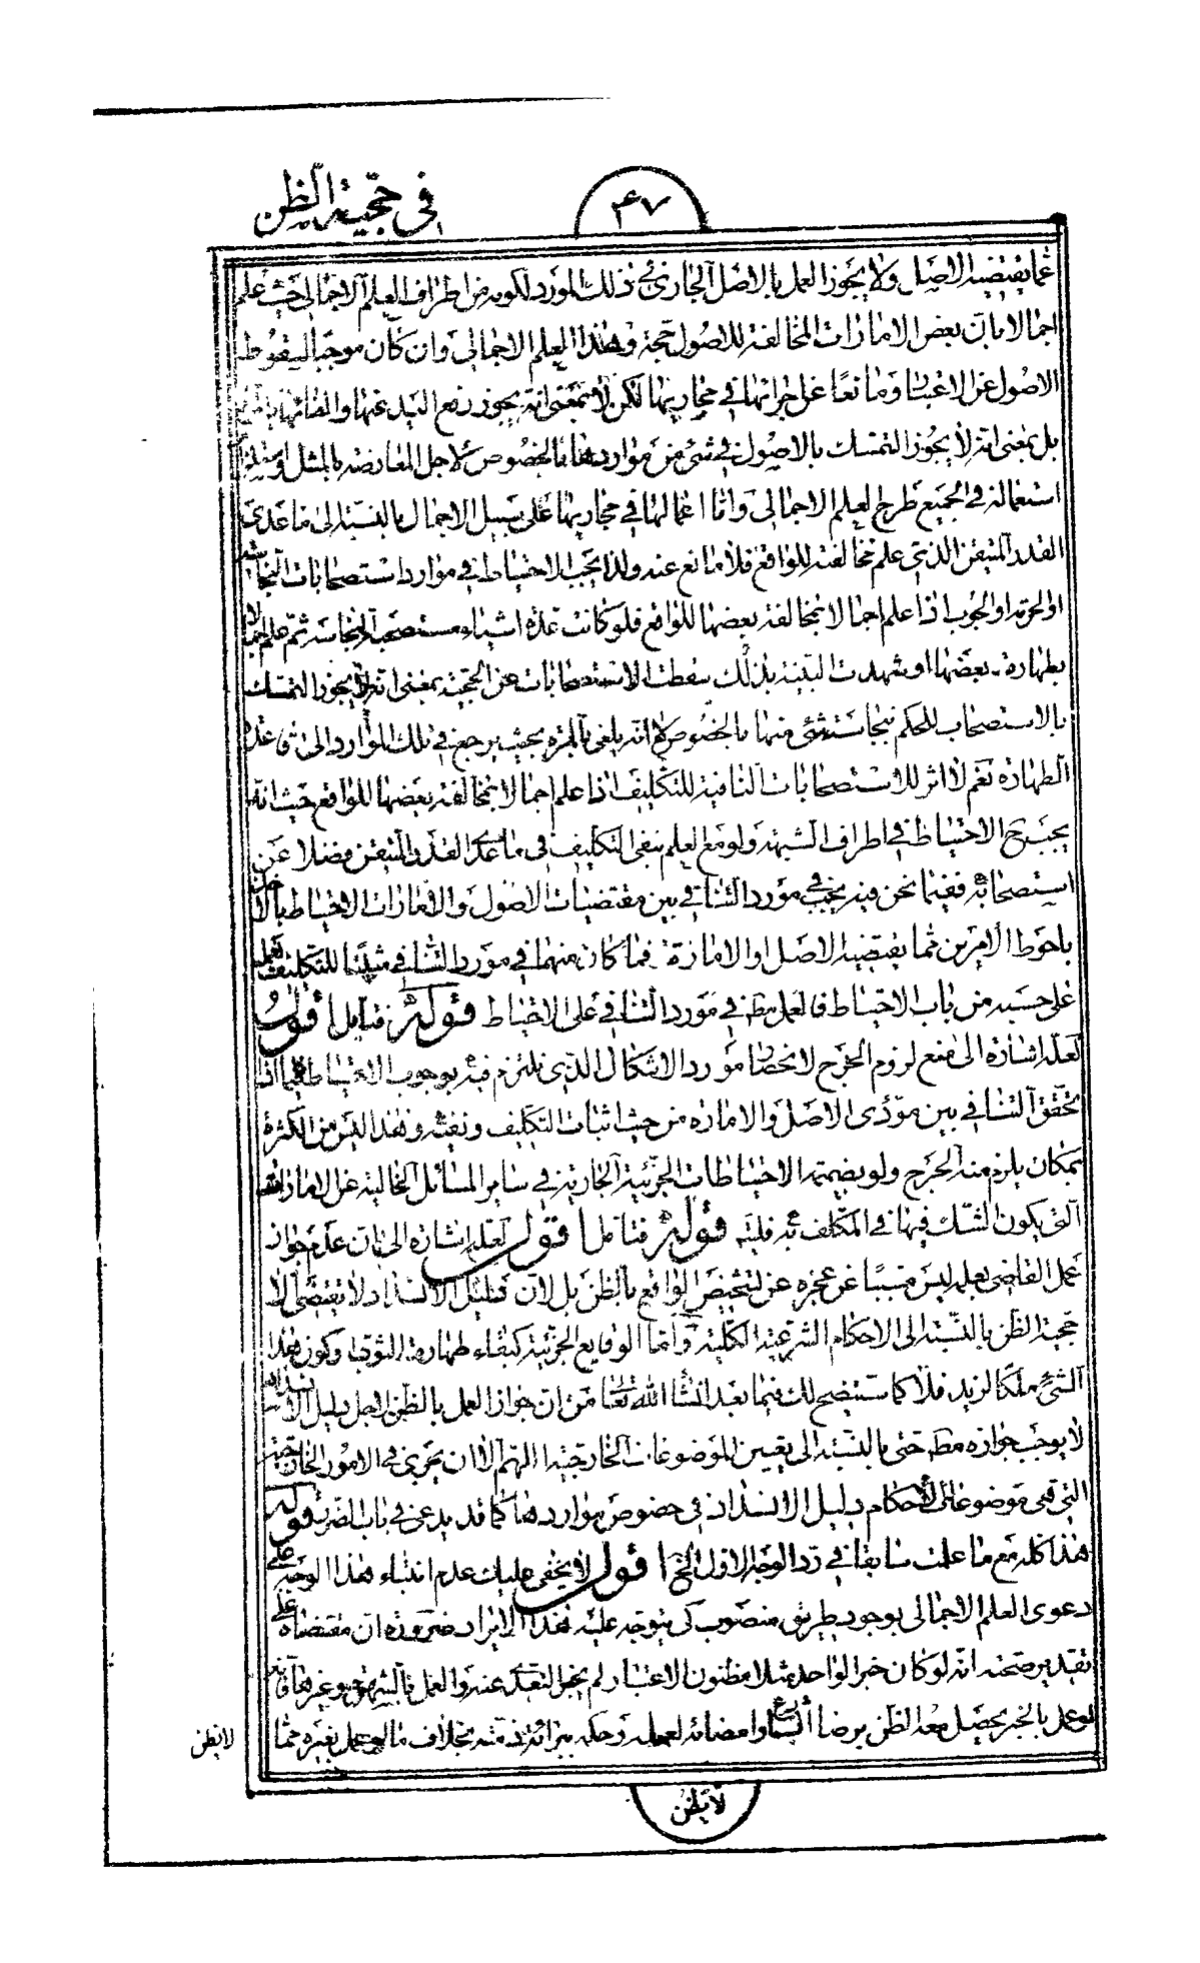 في حجّية الظن
۴۷
عما يقتضيه الاصل ولا يجوز العمل بالاصل الجاري في ذلك المورد لكونه من اطراف العلم الاجمالي حيث علم
اجمالا بان بعض الامارات المخالفة للاصول حجة وهذا العلم الاجمالي وان كان موجبا لسقوط
الاصول عن الاعتبار ومانعا عن اجرائها في مجاريها لكن لا بمعنى انه يجوز رفع اليد عنها والغائها
بل بمعنى انه لا يجوز التمسك بالاصول في شئ من مواردها بالخصوص لاجل المعارضة بالمثل
استعماله في الجميع طرح لعلم الاجمالي وامّا اعمالها في مجاريها على سبيل الاجمال بالنسبة الى ما عدى
القدر المتيقن الذي علم مخالفته للواقع فلا مانع عنه ولذا يجب الاحتياط في موارد استصحابات النجاسة
او الحرمة او الوجوب اذا علم اجمالا بمخالفة بعضها للواقع فلو كانت عدة اشياء مستصحب النجاسة ثم علم اجمالا
بطهارة بعضها او شهدت البينة بذلك سقطت الاستصحابات عن الحجية بمعنى انه لا يجوز التمسك
بالاستصحاب للحكم بنجاسة شئ منها بالخصوص لا انه يلغى بالمرة بحيث يرجع في تلك الموارد الى قاعدة
الطهارة نعم لا اثر للاستصحابات النافية للتكليف اذا علم اجمالا بمخالفة بعضها للواقع حيث انه
يجب ح الاحتياط في اطراف الشبهة ولو مع العلم بنفي التكليف في ما عدى القدر المتيقن فضلا عن
استصحابه ففيما نحن فيه يجب في مورد التنافي بين مقتضيات الاصول والامارات الاحتياط بالاخذ
باحوط الامرين مما يقتضيه الاصل او الامارة فما كان منهما في مورد التنافي مثبتا للتكليف يعمل
على حسبه من باب الاحتياط فالعمل مط في مورد التنافي على الاحتياط قوله فتامل اقول
لعله اشارة الى منع لزوم الحرج لانحصار مورد الاشكال الذي نلتزم فيه بوجوب الاحتياط فيما اذا
تحقق التنافي بين مؤدى الاصل والامارة من حيث اثبات التكليف ونفيه وهذا ليس من الكثرة
بمكان يلزم منه الحرج ولو بضميمة الاحتياطات الجزئية الجارية في ساير المسائل الخالية عن الامارات
التي يكون الشك فيها في المكلف به قوله فتامل اقول لعله اشارة الى بان عدم جواز
عمل القاضي بعلمه ليس مسببا عن عجزه عن تشخيص الواقع بالظن بل لان دليل الانسداد لا يقتضي الا
حجية الظن بالنسبة الى الاحكام الشرعية الكلية وامّا الوقايع الجزئية كبقاء طهارة الثوب وكون هذا
الشئ ملكا لزيد فلا كما ستتضح لك فيما بعد انشاء الله تعالى من ان جواز العمل بالظن لاجل دليل الانسداد
لا يوجب جوازه مط حتى بالنسبة الى تعيين الموضوعات الخارجية اللهم الا ان يجري في الامور الخارجية
التي هي موضوعات الاحكام دليل الانسداد في خصوص مواردها كما قد يدعى في باب الضرر قوله
هذا كله مع ما علمت سابقا في رد الوجه الاول الخ اقول لا يخفى عليك عدم ابتناء هذا الوجه على
دعوى العلم الاجمالي بوجود طريق منصوب كي يتوجه عليه هذا الايراد ضرورة ان مقتضاه على
تقدير صحته انه لو كان خبر الواحد مثلا مظنون الاعتبار لم يجز التعدي عنه والعمل بالشهرة وغيرها
لو عمل بالخبر يحصل معه الظن برضا الشارع وامضائه لعمله وحكمه ببرائة ذمته بخلاف ما لو عمل بغيره مما
لا يظن
لا يظن